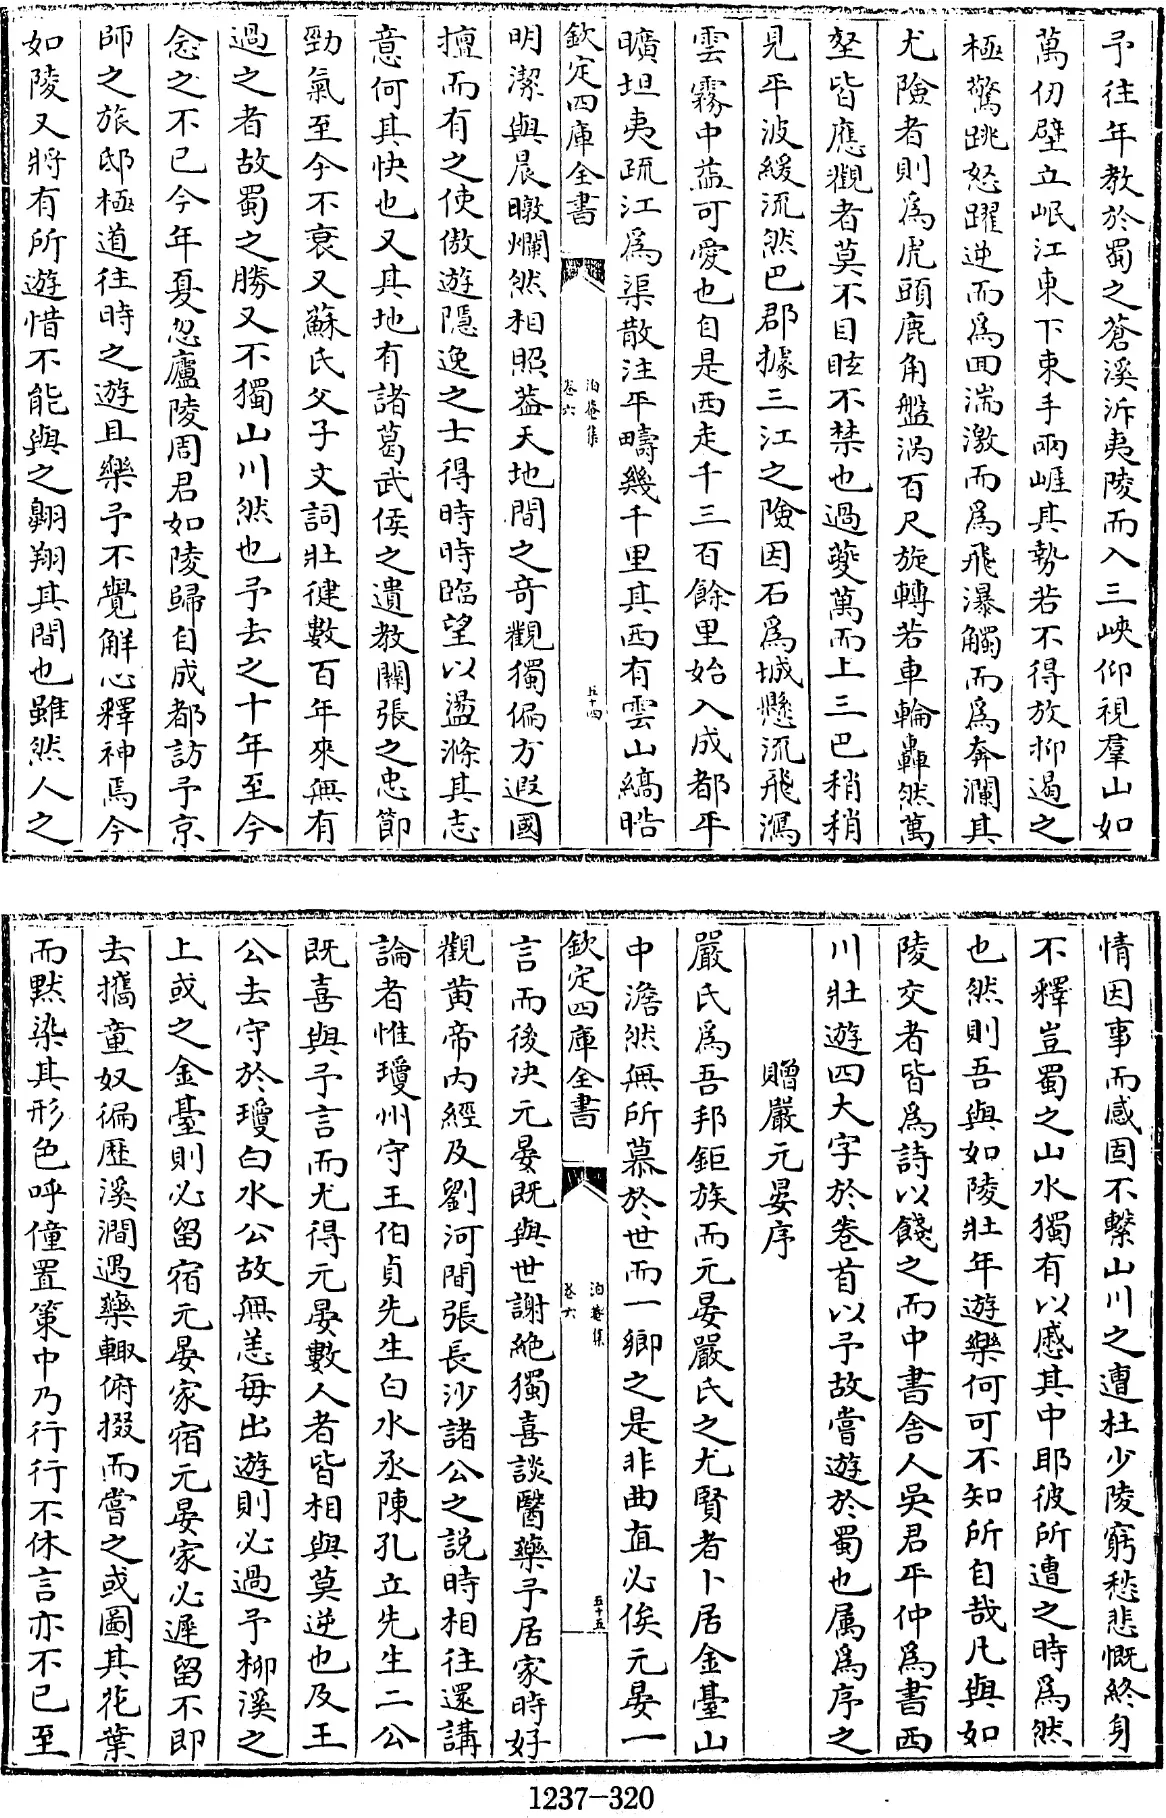 予往年教於蜀之蒼溪泝夷陵而入三峽仰視羣山如
萬仞壁立岷江東下束手兩崕其勢若不得放抑遏之
極驚跳怒躍逆而為回湍激而為飛瀑觸而為奔瀾其
尤險者則為虎頭鹿角盤渦百尺旋轉若車輪轟然萬
壑皆應觀者莫不目眩不禁也過夔萬而上三巴稍稍
見平波緩流然巴郡據三江之險因石為城懸流飛鴻
雲霧中益可愛也自是西走千三百餘里始入成都平
曠坦夷疏江為渠散注平疇幾千里其西有雲山縞皓
欽定四庫全書
泊菴集
卷六
五十四
明潔與晨暾爛然相照葢天地間之奇觀獨偏方遐國
擅而有之使傲遊隱逸之士得時時臨望以盪滌其志
意何其快也又其地有諸葛武侯之遺教關張之忠節
勁氣至今不衰又蘇氏父子文詞壯健數百年來無有
過之者故蜀之勝又不獨山川然也予去之十年至今
念之不已今年夏忽廬陵周君如陵歸自成都訪予京
師之旅邸極道往時之遊且樂予不覺解心釋神焉今
如陵又將有所遊惜不能與之翺翔其間也雖然人之
情因事而感固不繫山川之遭杜少陵窮愁悲慨終身
不釋豈蜀之山水獨有以慼其中耶彼所遭之時為然
也然則吾與如陵壯年遊樂何可不知所自哉凡與如
陵交者皆為詩以餞之而中書舍人吳君平仲為書西
川壯遊四大字於卷首以予故嘗遊於蜀也属為序之
贈嚴元晏序
嚴氏為吾邦鉅族而元晏嚴氏之尤賢者卜居金臺山
中澹然無所慕於世而一鄉之是非曲直必俟元晏一
欽定四庫全書
泊菴集
卷六
五十五
言而後决元晏既與世謝絶獨喜談醫藥予居家時好
觀黄帝内經及劉河間張長沙諸公之説時相往還講
論者惟瓊州守王伯貞先生白水丞陳孔立先生二公
既喜與予言而尤得元晏數人者皆相與莫逆也及王
公去守於瓊白水公故無恙毎出遊則必過予柳溪之
上或之金臺則必留宿元晏家宿元晏家必遲留不即
去攜童奴徧歴溪澗遇藥輙俯掇而嘗之或圖其花葉
而黙染其形色呼僮置䇿中乃行行不休言亦不已至
1237-320